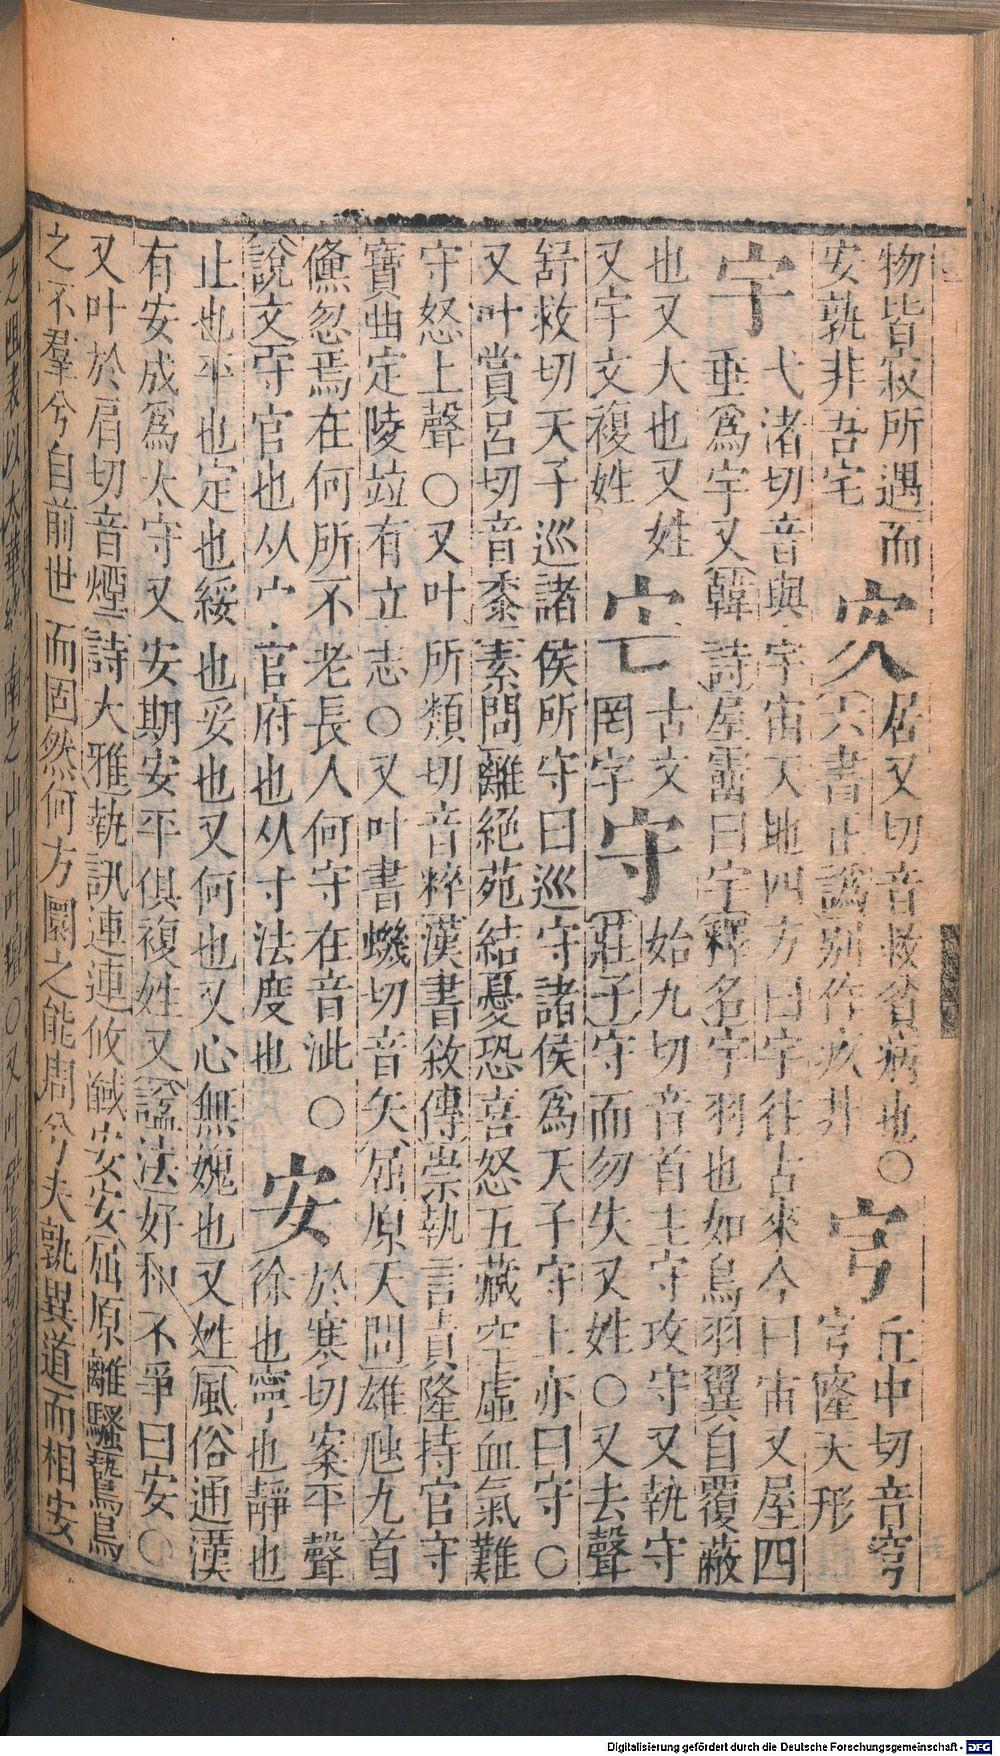 物皆寂所遇而
安孰非吾宅
㝌
居又切音救貧病也○
六書正譌別作疚非
穹
丘中切音穹
穹窿天形
宇
弋渚切音與宇宙天地四方曰宇往古來今曰宙又屋四
垂爲宇又韓詩屋霤曰宇釋名宇羽也如鳥羽翼自覆蔽
也又大也又姓
又宇文複姓
𡧏
古文
罔字
守
始九切音首主守攻守又執守
莊子守而勿失又姓○又去聲
舒救切天子巡諸侯所守曰巡守諸侯爲天子守土亦曰守○
又叶賞呂切音黍素問離絕菀結憂恐喜怒五藏空虛血氣離
守怒上聲○又叶所類切音粹漢書敘傳崇執言責隆持官守
寶曲定陵竝有立志○又叶書蟣切音矢屈原天問雄虺九首
儵忽焉在何所不老長人何守在音泚○
說文守官也从宀官府也从寸法度也
安
於寒切案平聲
徐也寧也靜也
止也平也定也綏也妥也又何也又心無媿也又姓風俗通漢
有安成爲太守又安期安平俱複姓又諡法好和不爭曰安○
又叶於肩切音煙詩大雅執訊連連攸馘安安屈原離騷鷙鳥
之不羣兮自前世而固然何方圜之能周兮夫孰異道而相安
Digitalisierung gefördert durch die Deutsche Forschungsgemeinschaft - DFG